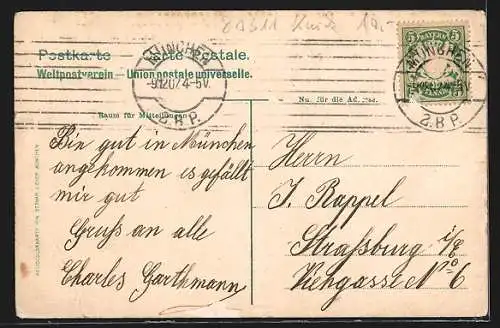 Postkarte Carte postale.
Weltpostverein — Union postale universelle.
MÜNCHEN
2.B.P.
5 BAYERN 5
MÜNCHEN
2.B.P.
Raum für Mitteilungen
Nu. für die Ad
Bin gut in München
angekommen es gefällt
mir gut
Gruss an alle
Charles Garthmann
Herrn
J. Rappel
Straßburg i/E
Viehgasse No 6